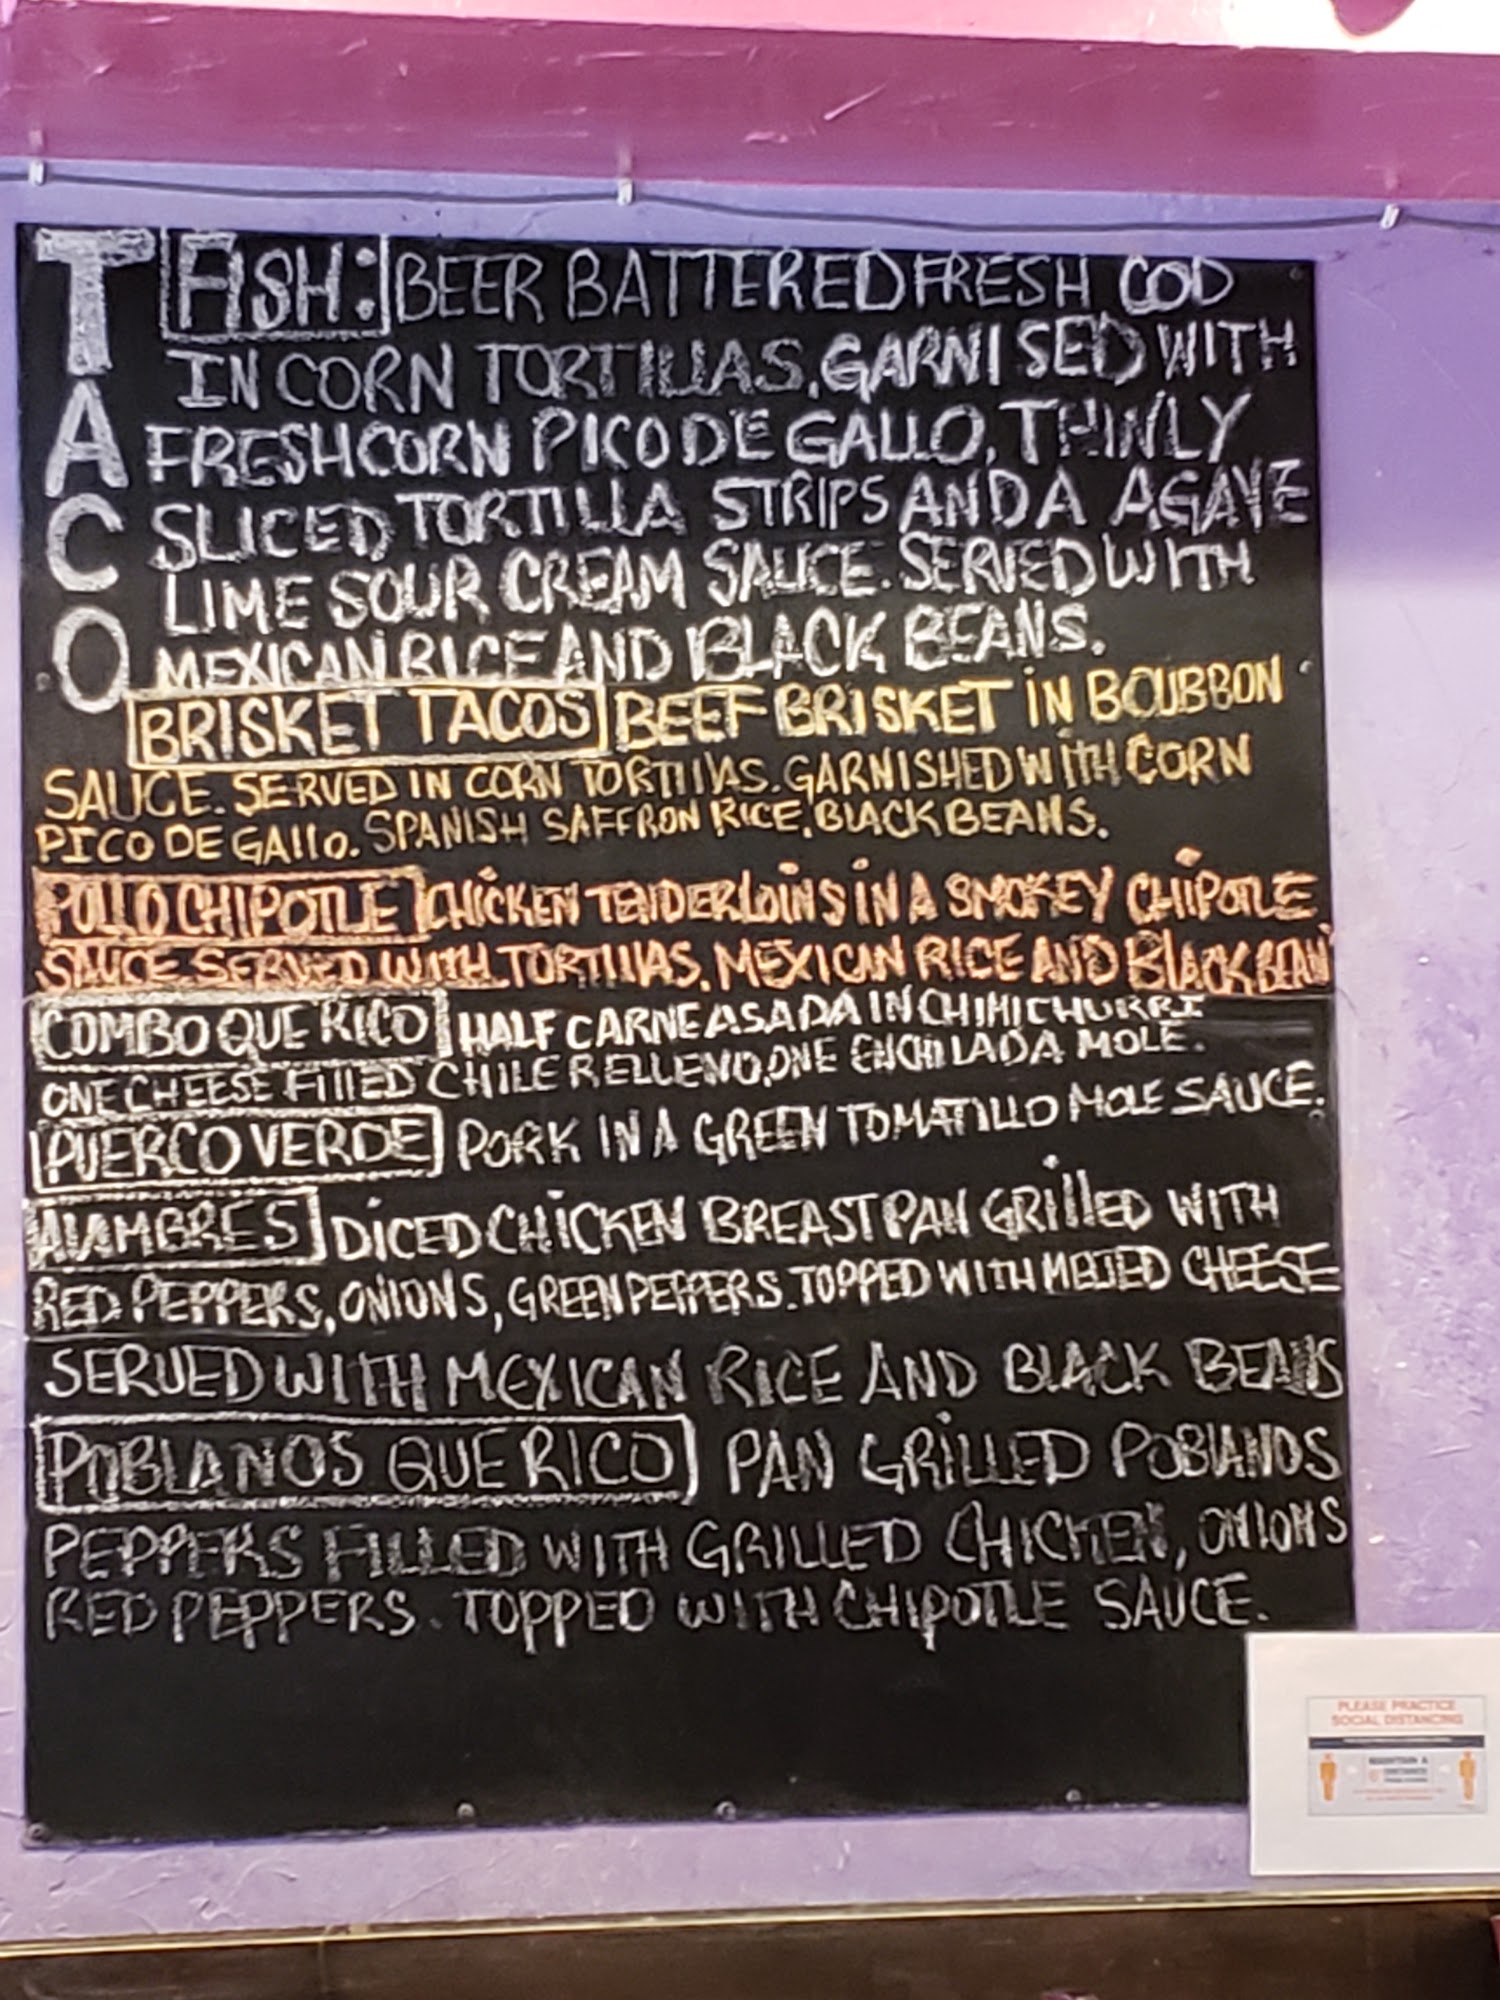 TACO
FISH: BEER BATTERED FRESH COD
IN CORN TORTILLAS, GARNISED WITH
FRESH CORN PICO DE GALLO, THINLY
SLICED TORTILLA STRIPS AND A AGAVE
LIME SOUR CREAM SAUCE. SERVED WITH
MEXICAN RICE AND BLACK BEANS.
BRISKET TACOS BEEF BRISKET IN BOURBON
SAUCE. SERVED IN CORN TORTILLAS. GARNISHED WITH CORN
PICO DE GALLO. SPANISH SAFFRON RICE, BLACK BEANS.
POLLO CHIPOTLE CHICKEN TENDERLOINS IN A SMOKEY CHIPOTLE
SAUCE SERVED WITH TORTILLAS, MEXICAN RICE AND BLACK BEAN
COMBO QUE RICO HALF CARNE ASADA IN CHIMICHURRI
ONE CHEESE FILLED CHILE RELLENO, ONE ENCHILADA MOLE.
PUERCO VERDE PORK IN A GREEN TOMATILLO MOLE SAUCE.
ALAMBRES DICED CHICKEN BREAST PAN GRILLED WITH
RED PEPPERS, ONIONS, GREEN PEPPERS. TOPPED WITH MELTED CHEESE
SERVED WITH MEXICAN RICE AND BLACK BEANS
POBLANOS QUE RICO PAN GRILLED POBLANOS
PEPPERS FILLED WITH GRILLED CHICKEN, ONIONS
RED PEPPERS. TOPPED WITH CHIPOTLE SAUCE.
PLEASE PRACTICE
SOCIAL DISTANCING